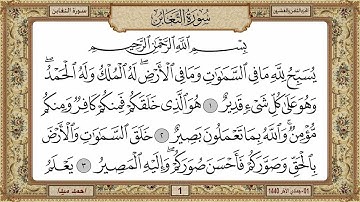 سورة التغابن
سُورَةُ التَّغَابُنِ
بِسْمِ اللَّهِ الرَّحْمَٰنِ الرَّحِيمِ
يُسَبِّحُ لِلَّهِ مَا فِي السَّمَاوَاتِ وَمَا فِي الْأَرْضِ ۖ لَهُ الْمُلْكُ وَلَهُ الْحَمْدُ ۖ
وَهُوَ عَلَىٰ كُلِّ شَيْءٍ قَدِيرٌ ١ هُوَ الَّذِي خَلَقَكُمْ فَمِنكُمْ كَافِرٌ وَمِنكُم
مُّؤْمِنٌ ۚ وَاللَّهُ بِمَا تَعْمَلُونَ بَصِيرٌ ٢ خَلَقَ السَّمَاوَاتِ وَالْأَرْضَ
بِالْحَقِّ وَصَوَّرَكُمْ فَأَحْسَنَ صُوَرَكُمْ ۖ وَإِلَيْهِ الْمَصِيرُ ٣ يَعْلَمُ
1440
1
احمد